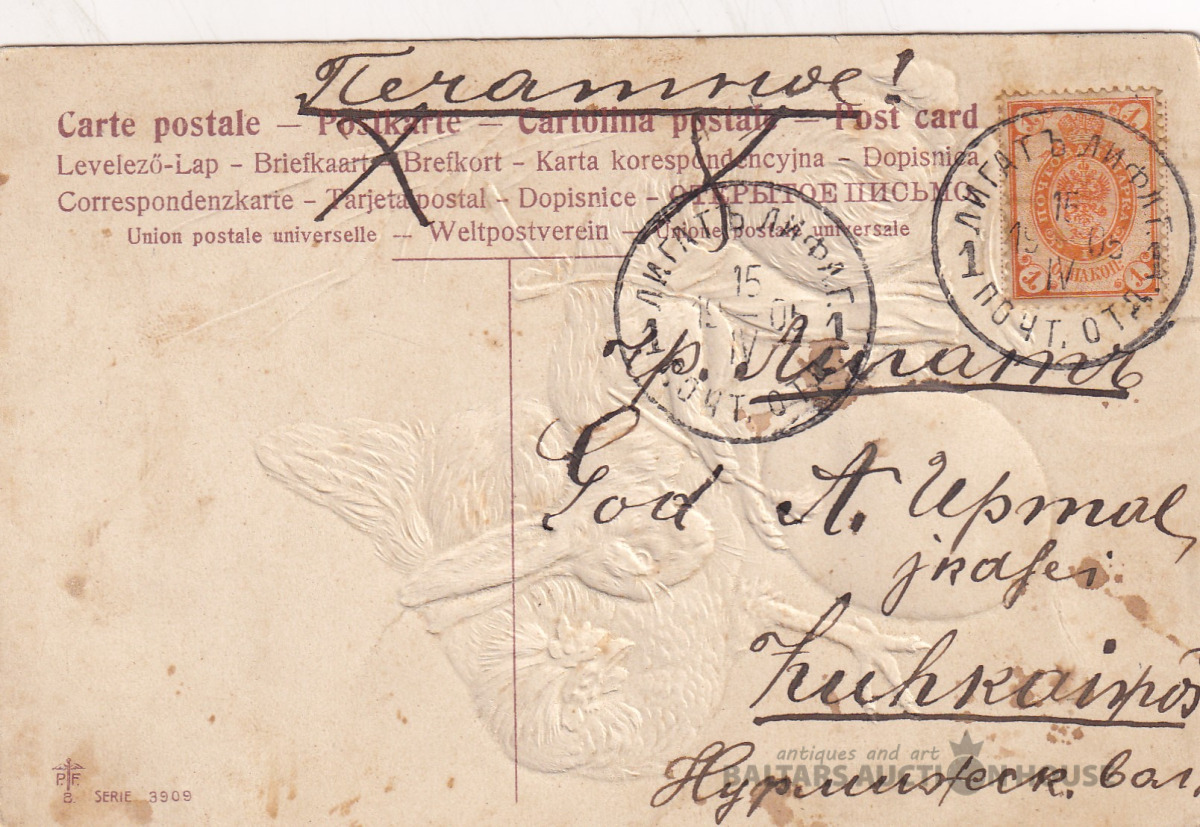 Печатное!
Carte postale — Postkarte — Cartolina postale — Post card
Levelező-Lap – Briefkaart – Brefkort – Karta korespondencyjna – Dopisnica
Correspondenzkarte – Tarjeta postal – Dopisnice – ОТКРЫТОЕ ПИСЬМО
Union postale universelle — Weltpostverein — Unione postale universale
ЛИГАТЪ ЛИФЛ.Г.
15
IV
1 1
ПОЧТ. ОТД.
ЛИГАТЪ ЛИФЛ.Г.
15
19 — 05
IV
1
ПОЧТ. ОТД.
Лигатъ
God A.
jkdsei
Нурмижск. вол.
P.F.
B. SERIE 3909
antiques and art
BALTARS AUCTION HOUSE